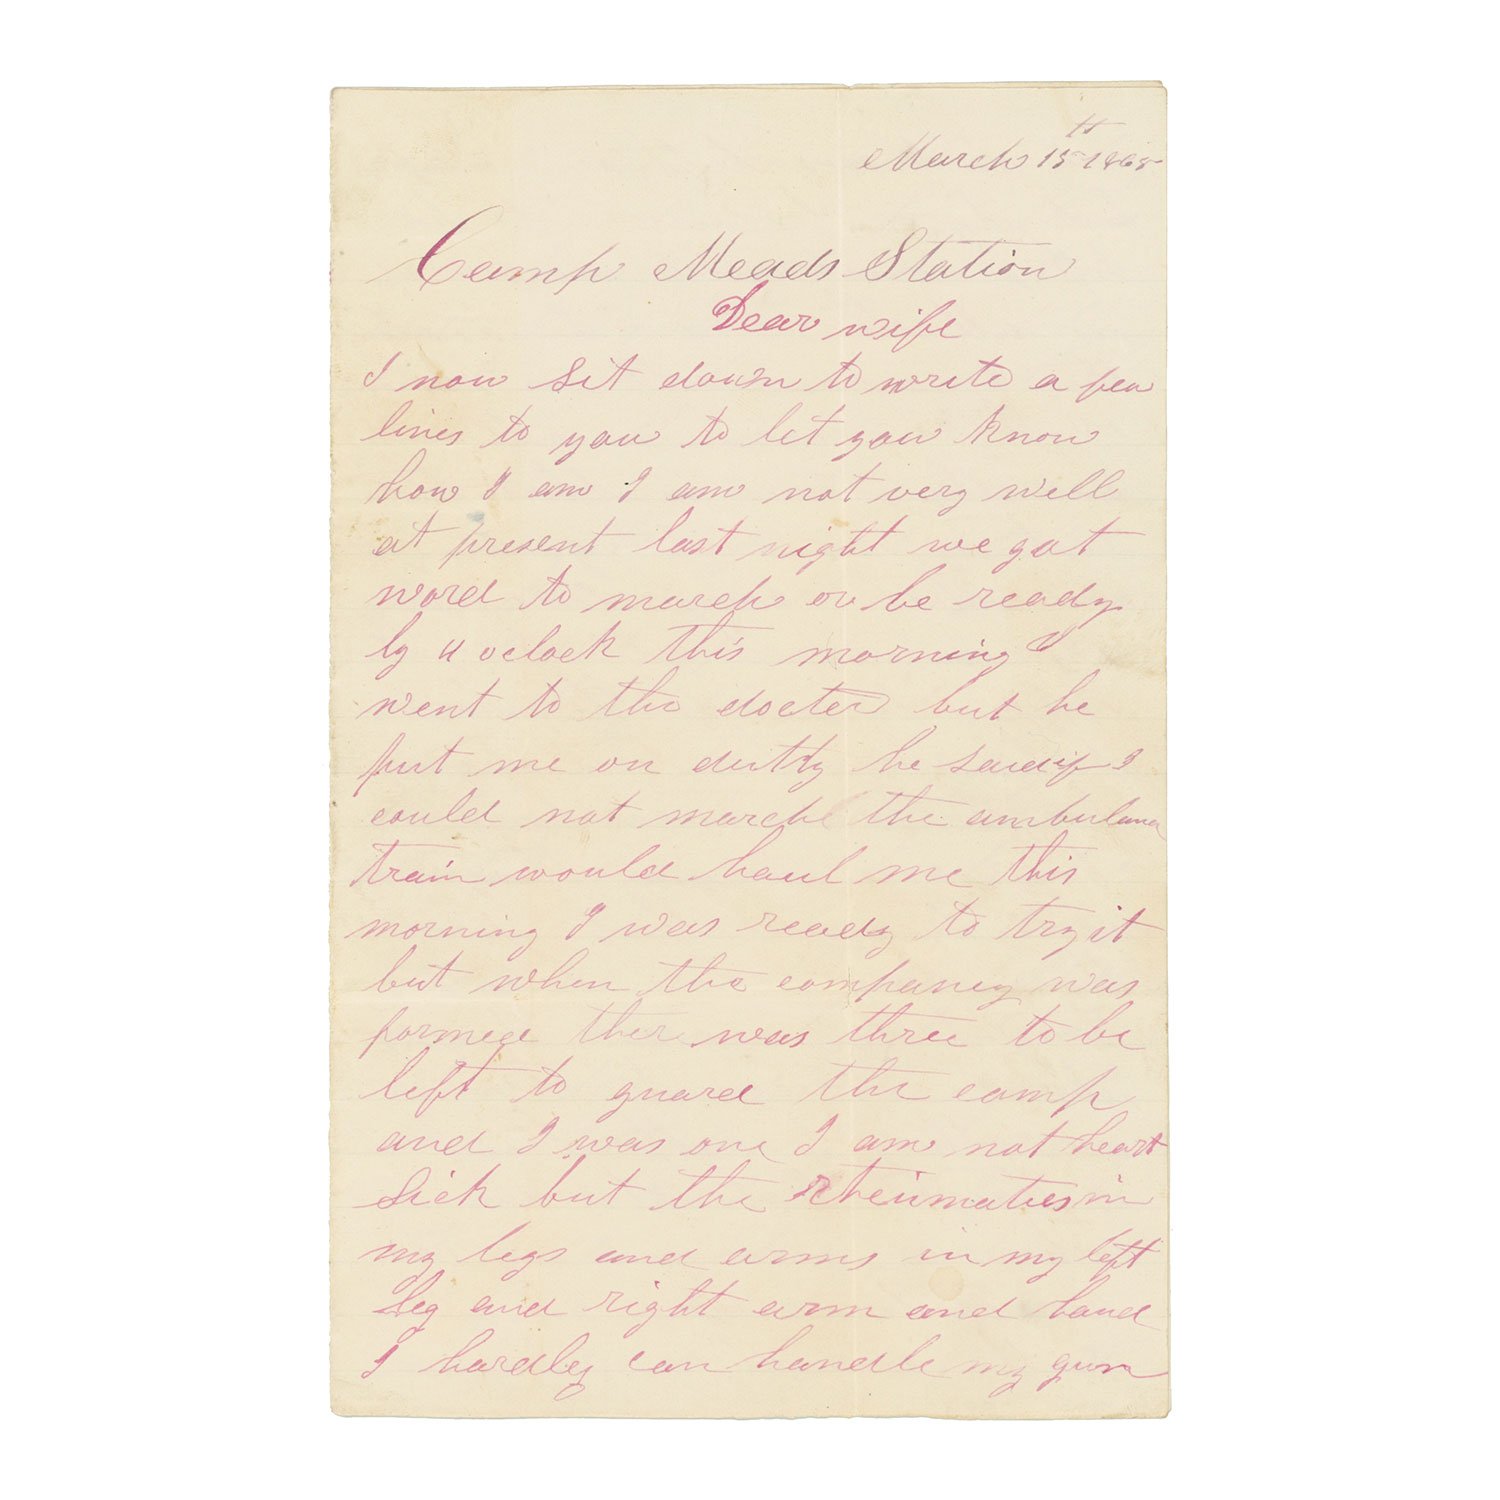 March 15th 1865
Camp Meads Station
Dear wife
I now sit down to write a few
lines to you to let you know
how I am I am not very well
at present last night we got
word to march or be ready
by 4 oclock this morning I
went to the docter but he
put me on dutty he said if I
could not march the ambulance
train would haul me this
morning I was ready to try it
but when the company was
formed ther was three to be
left to guard the camp
and I was one I am not heart
sick but the rheumaties in
my legs and arms in my left
leg and right arm and hand
I hardley can handle my gun